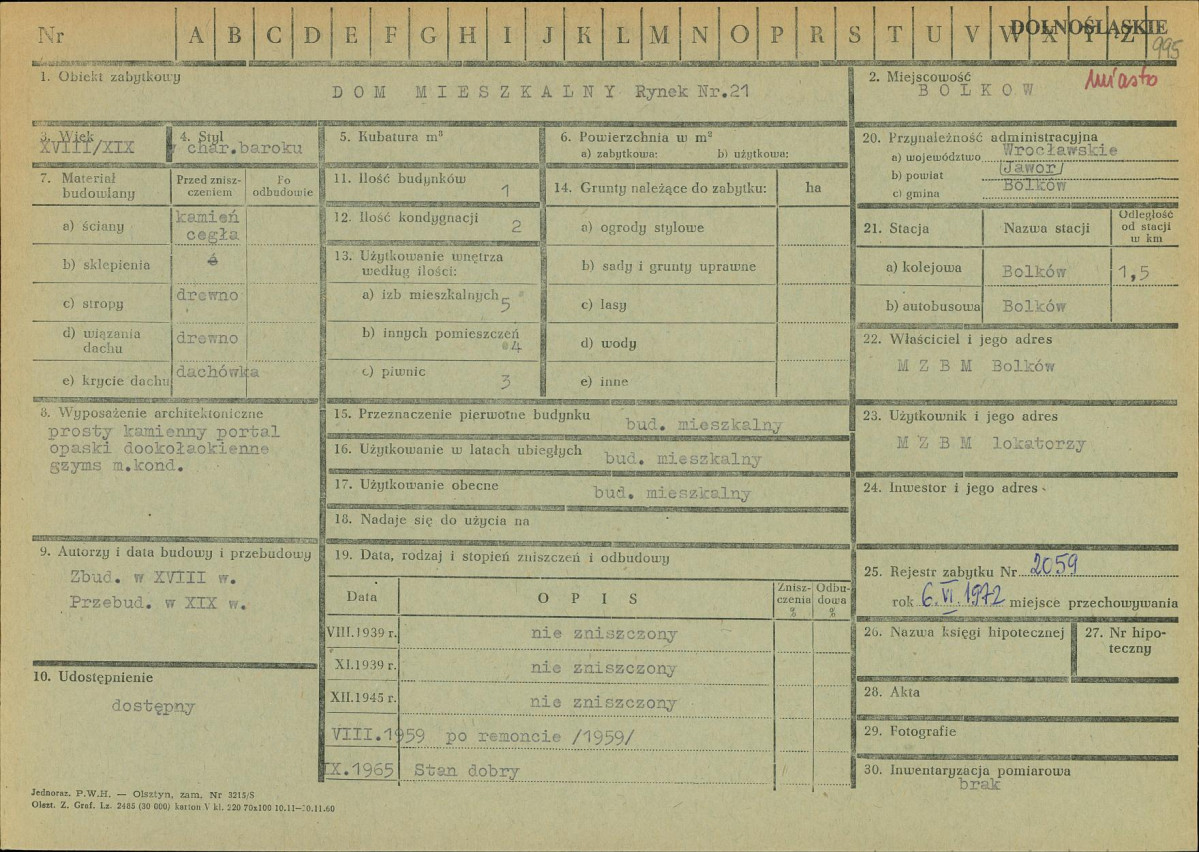 Nr A B C D E F G H I J K L M N O P R S T U V W X Y Z
DOLNOŚLĄSKIE
995
1. Obiekt zabytkowy
DOM MIESZKALNY Rynek Nr.21
2. Miejscowość
BOLKOW
miasto
3. Wiek
XVIII/XIX
4. Styl
char.baroku
5. Kubatura m³
6. Powierzchnia w m²
a) zabytkowa: b) użytkowa:
20. Przynależność administracyjna
a) województwo Wrocławskie
b) powiat Jawor
c) gmina Bolków
7. Materiał budowlany
Przed zniszczeniem
Po odbudowie
a) ściany kamień
cegła
b) sklepienia
c) stropy drewno
d) wiązania dachu drewno
e) krycie dachu dachówka
11. Ilość budynków 1
12. Ilość kondygnacji 2
13. Użytkowanie wnętrza
według ilości:
a) izb mieszkalnych 5
b) innych pomieszczeń
4
c) piwnic 3
14. Grunty należące do zabytku: ha
a) ogrody stylowe
b) sady i grunty uprawne
c) lasy
d) wody
e) inne
21. Stacja Nazwa stacji
Odległość
od stacji
w km
a) kolejowa Bolków 1,5
b) autobusowa Bolków
22. Właściciel i jego adres
M Z B M Bolków
8. Wyposażenie architektoniczne
prosty kamienny portal
opaski dookołaokienne
gzyms m.kond.
15. Przeznaczenie pierwotne budynku
bud. mieszkalny
16. Użytkowanie w latach ubiegłych
bud. mieszkalny
17. Użytkowanie obecne bud. mieszkalny
18. Nadaje się do użycia na
23. Użytkownik i jego adres
M Z B M lokatorzy
24. Inwestor i jego adres
9. Autorzy i data budowy i przebudowy
Zbud. w XVIII w.
Przebud. w XIX w.
19. Data, rodzaj i stopień zniszczeń i odbudowy
Data O P I S
Znisz-
czenia
%
Odbu-
dowa
%
VIII.1939 r. nie zniszczony
XI.1939 r. nie zniszczony
XII.1945 r. nie zniszczony
VIII.1959 po remoncie /1959/
IX.1965 Stan dobry
25. Rejestr zabytku Nr 2059
rok 6.VI.1972 miejsce przechowywania
26. Nazwa księgi hipotecznej
27. Nr hipo-
teczny
10. Udostępnienie
dostępny
28. Akta
29. Fotografie
30. Inwentaryzacja pomiarowa
brak
Jednoraz. P.W.H. — Olsztyn, zam. Nr 3215/S
Olszt. Z. Graf. Lz. 2485 (30 000) karton V kl. 220 70x100 10.11—10.11.60